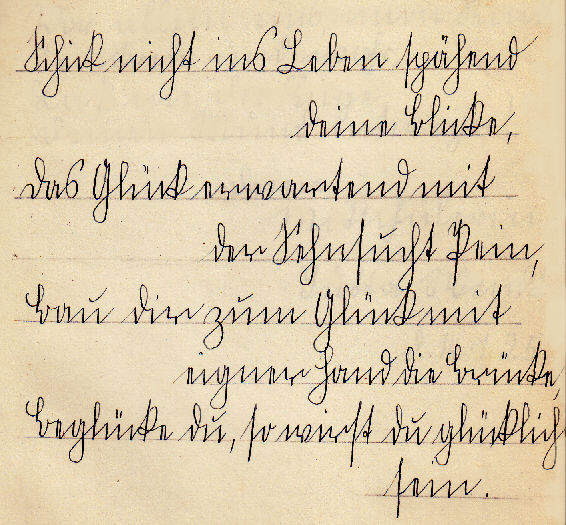 Schick nicht ins Leben spähend
deine Blicke,
das Glück erwartend mit
der Sehnsucht Pein,
Bau dir zum Glück mit
eigner Hand die Brücke,
Beglücke du, so wirst du glücklich
sein.